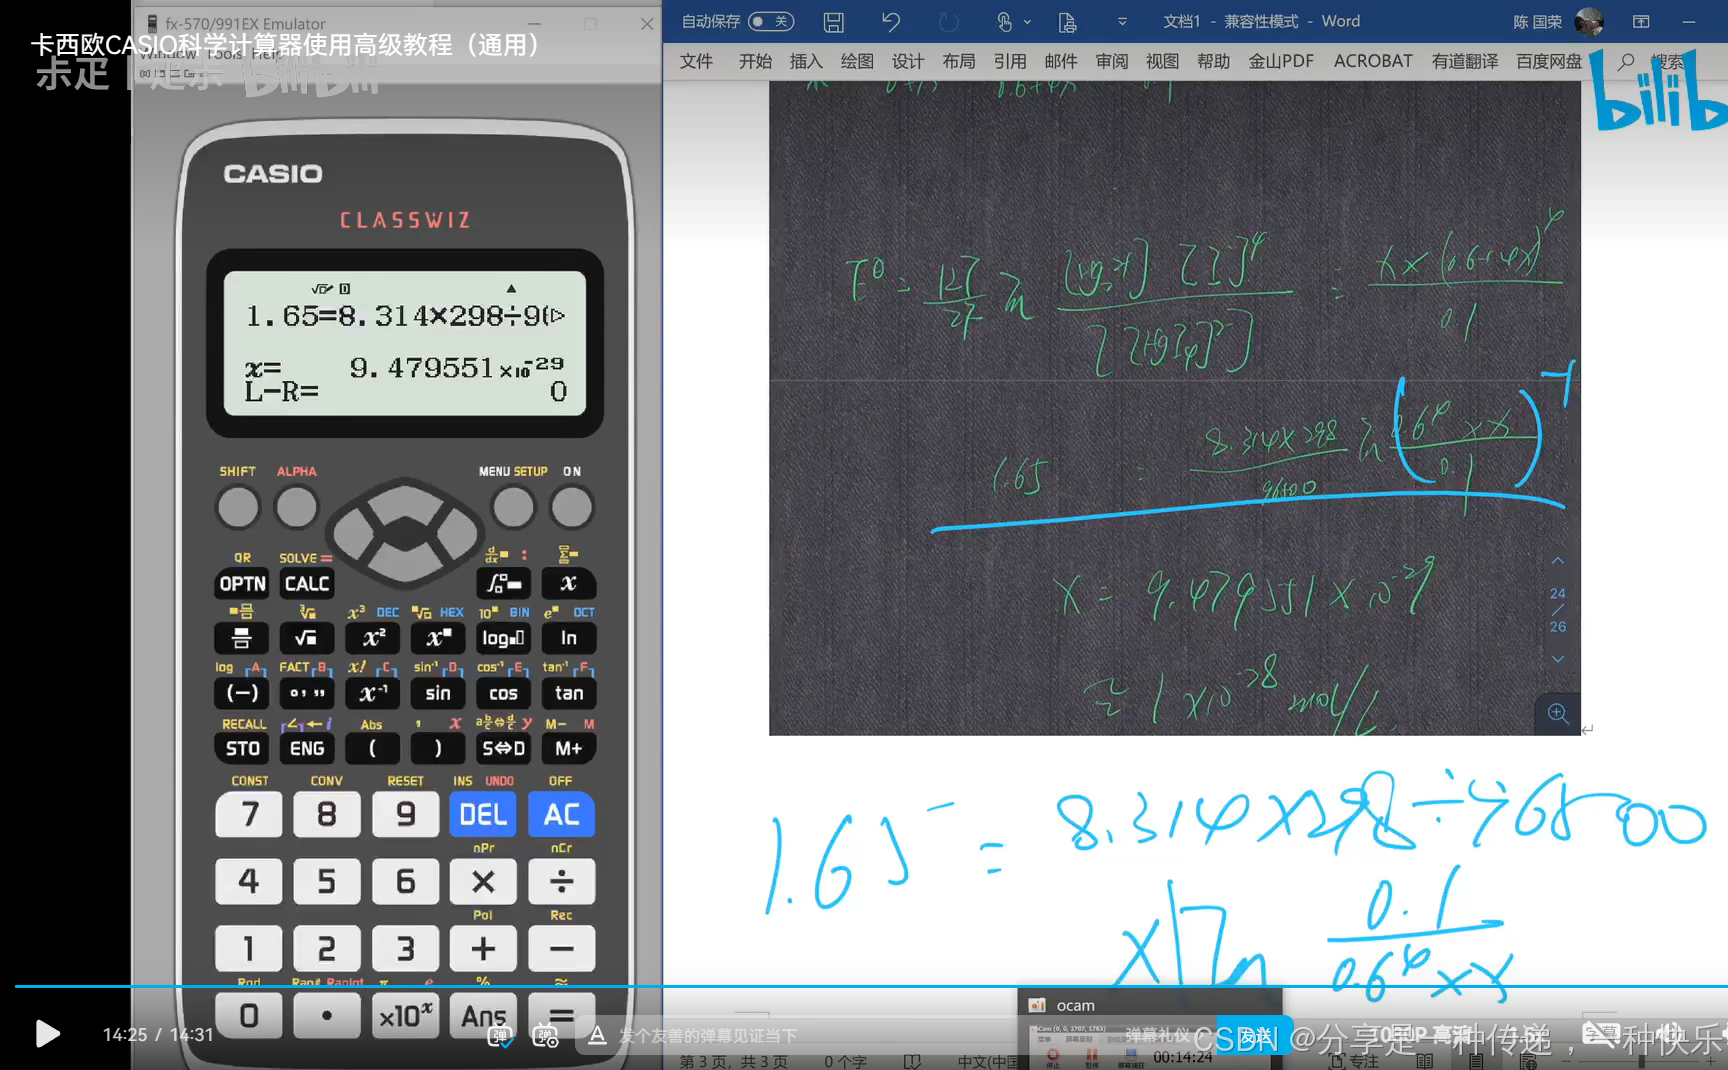 fx-570/991EX Emulator
卡西欧CASIO科学计算器使用高级教程（通用）
Window Tools Help
bilibili
CASIO
CLASSWIZ
1.65=8.314×298÷9
x= 9.479551×10⁻²⁹
L−R= 0
SHIFT ALPHA MENU SETUP ON
QR SOLVE =
OPTN CALC x
DEC HEX 10■ BIN e■ OCT
√■ x² x■ log■□ ln
log A FACT B x! C sin⁻¹ D cos⁻¹ E tan⁻¹ F
(−) x⁻¹ sin cos tan
RECALL ∠ i Abs , x y M− M
STO ENG ( ) S⇔D M+
CONST CONV RESET INS UNDO OFF
7 8 9 DEL AC
nPr nCr
4 5 6 × ÷
Pol Rec
1 2 3 + −
Rnd Ran# RanInt π e % ≈
0 • ×10ˣ Ans =
自动保存 关 文档1 - 兼容性模式 - Word 陈 国荣
文件 开始 插入 绘图 设计 布局 引用 邮件 审阅 视图 帮助 金山PDF ACROBAT 有道翻译 百度网盘 搜索
bilib
1.65 = 8.314×298 / 96500 ln (0.6⁴ × x / 0.1)⁻¹
x = 9.479551 × 10⁻²⁹
≈ 1 × 10⁻²⁸ mol/L
24
/
26
1.65 = 8.314×298÷96500
× ln 0.1 / 0.6⁴ × x
ocam
14:25 / 14:31
弹 弹 A 发个友善的弹幕见证当下 弹幕礼仪 发送
00:14:24
第 3 页，共 3 页 0 个字 中文(中国 专注
CSDN @分享是一种传递，一种快乐